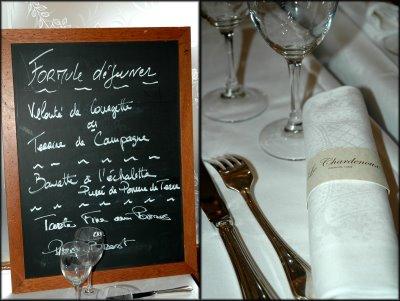 Formule déjeuner
Velouté de Courgette
ou
Terrine de Campagne
Bavette à l'échalotte
Purée de Pomme de Terre
Tarte Fine aux Pommes
ou
Le Chardenoux